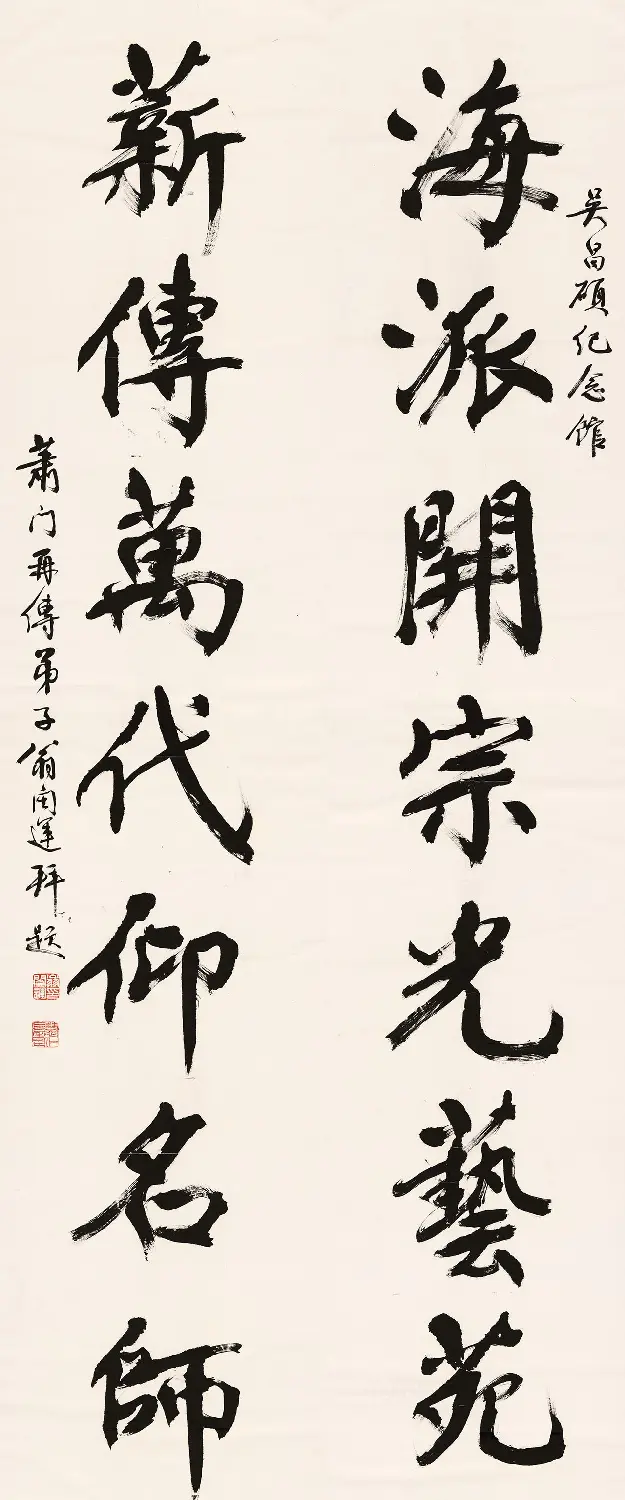 吴昌硕纪念馆
海派開宗光藝苑
薪傳萬代仰名師
萧门再傳弟子翁闿運拜题